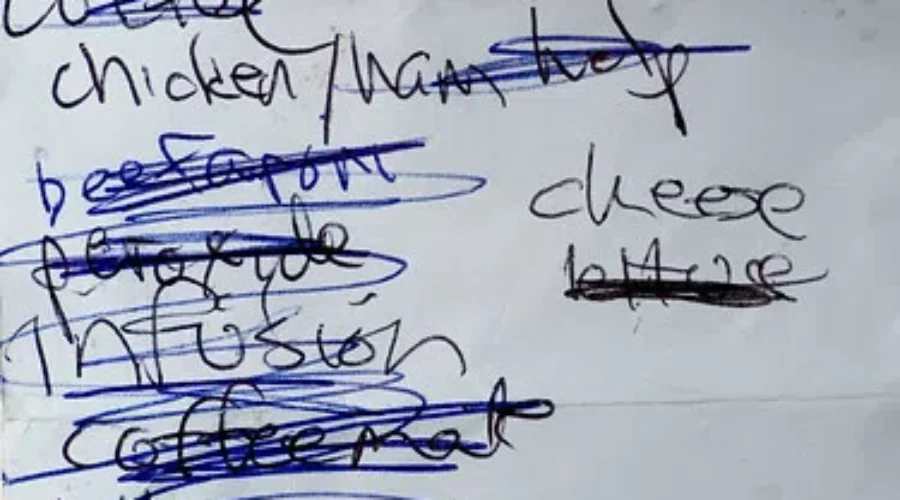 chicken/ham help
beefaroni
peroxide
infusión
coffeemate
cheese
lettuce